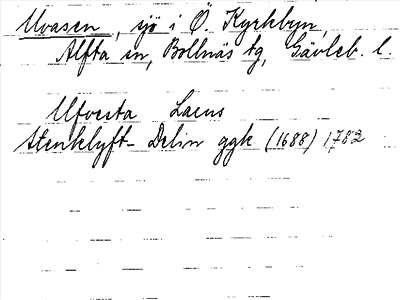 Uvasen, sjö i Ö. Kyrkbyn,
Alfta sn, Bollnäs tg, Gävleb. l.
Utvesta Lacus
Stenklyft- Delin ggk (1688) 1782